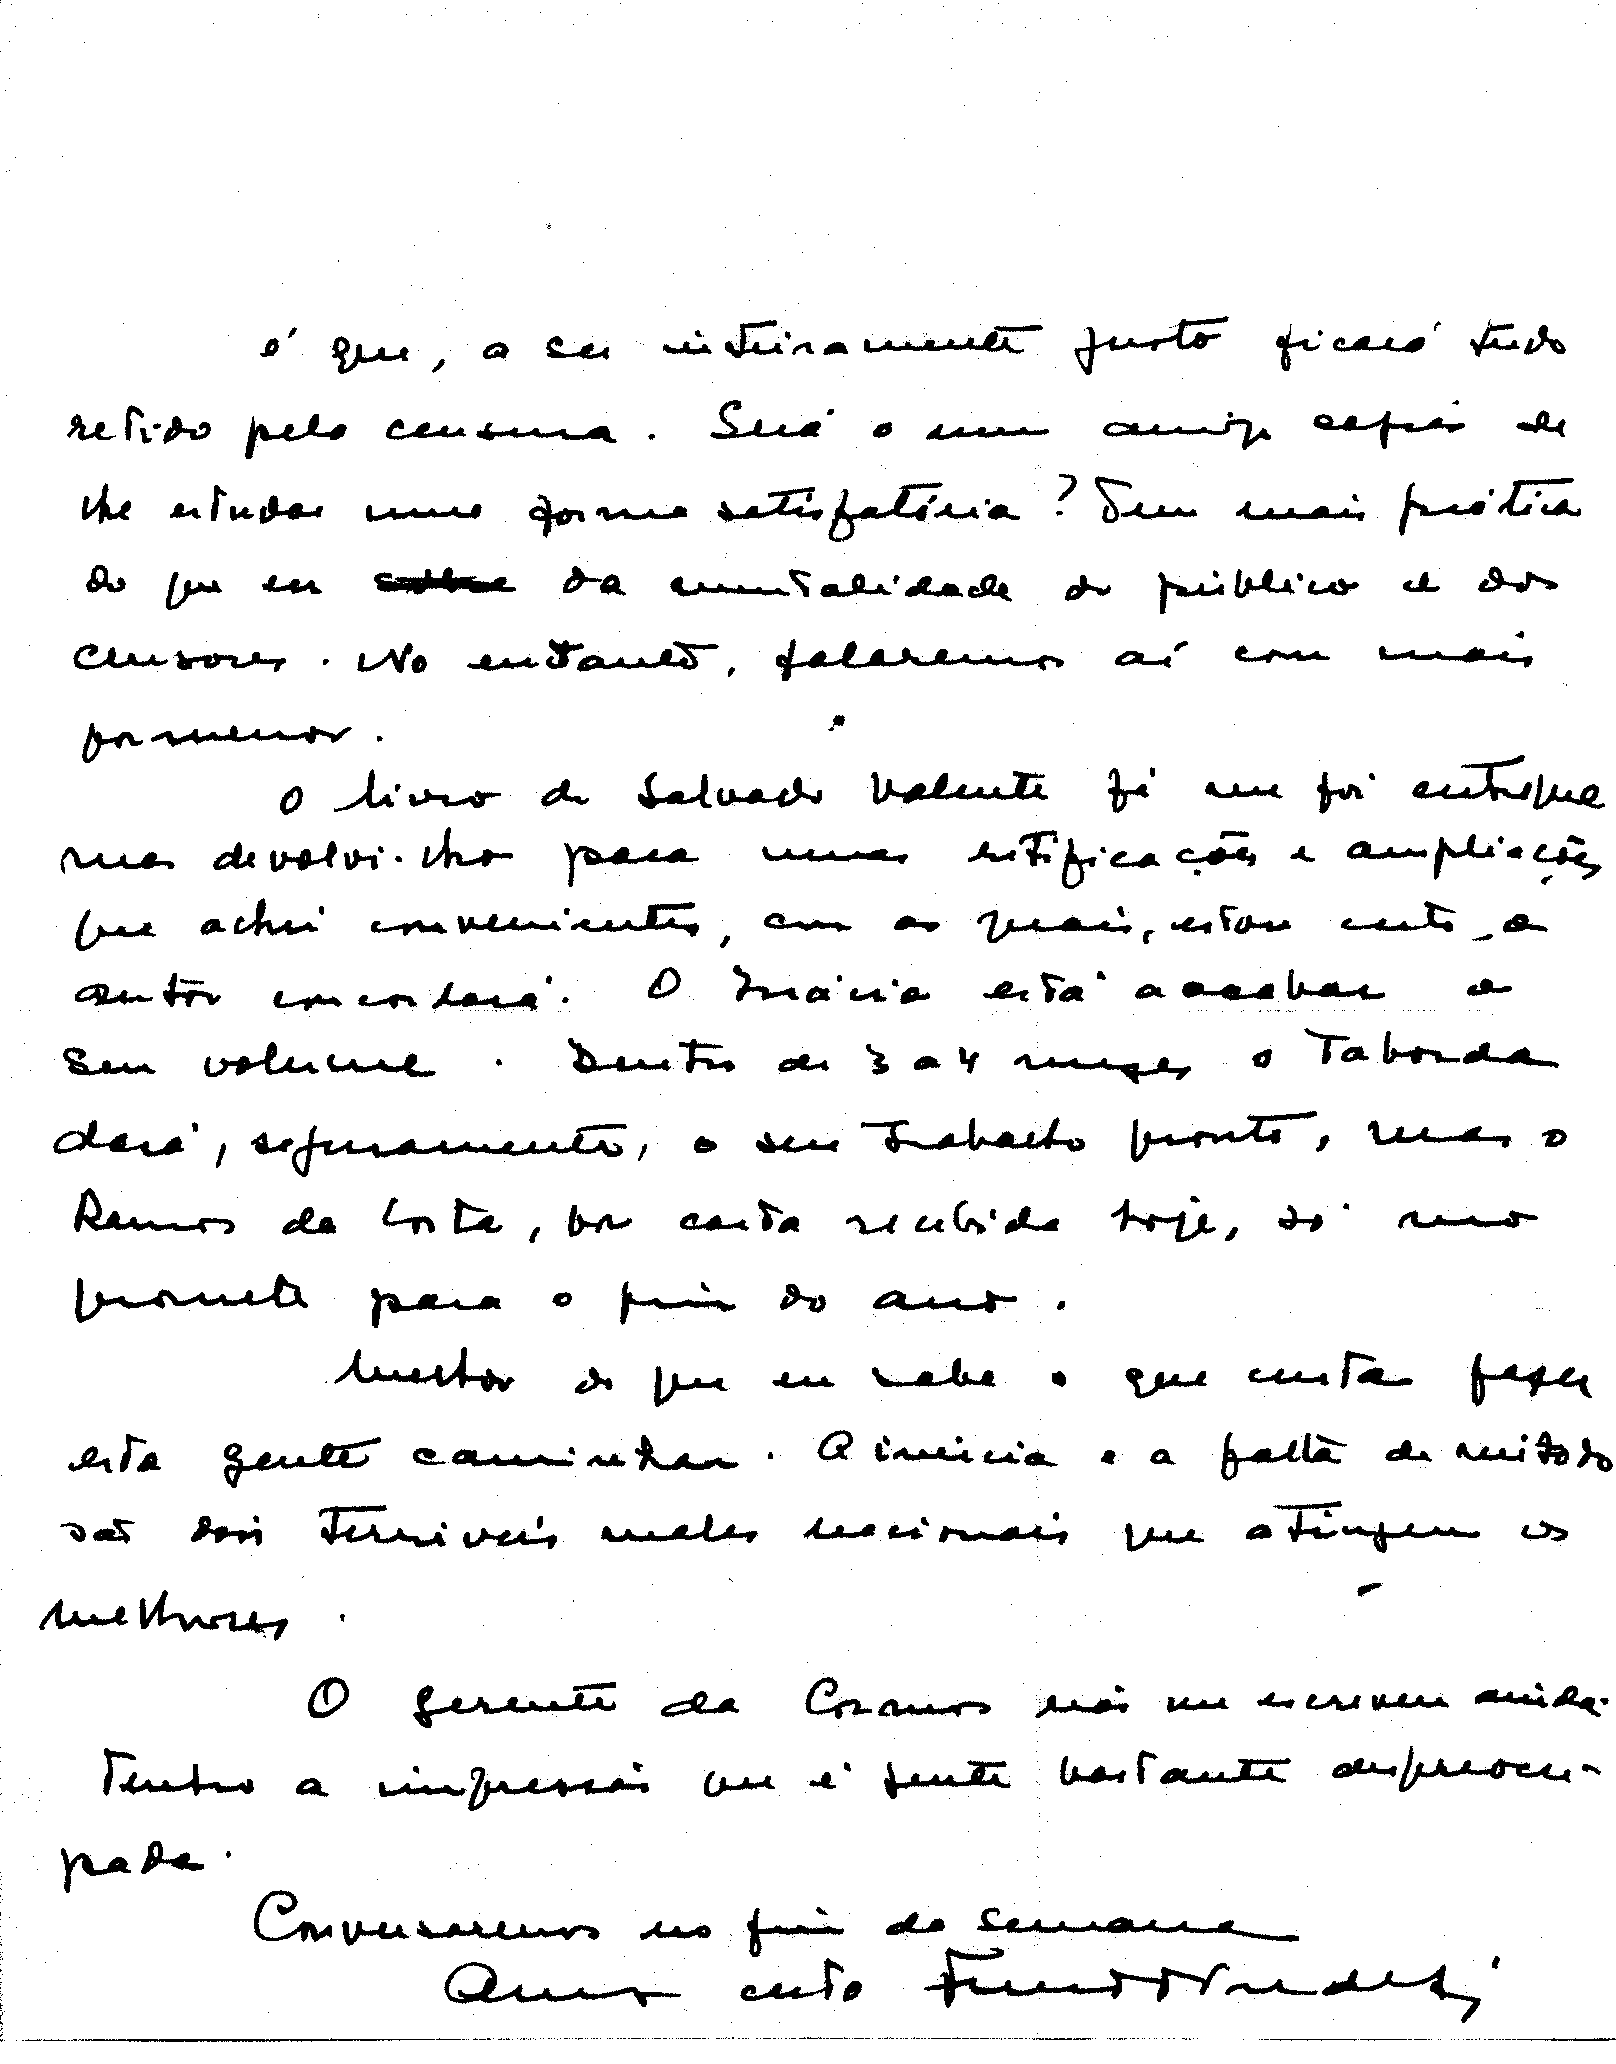 é que, a ser inteiramente justo ficará tudo
retido pela censura. Será o meu amigo capaz de
lhe estudar uma forma satisfatória? Tem mais prática
do que eu da mentalidade do público e dos
censores. No entanto, falaremos aí com mais
pormenor.
O livro de Salvado Valente já me foi entregue
mas devolvi-lho para umas rectificações e ampliações
que achei convenientes, com as quais, estou certo, o
autor concordará. O Inácio está a acabar o
seu volume. Dentro de 3 a 4 mezes o Taborda
dará, seguramente, o seu trabalho pronto, mas o
Ramos da Costa, por carta recebida hoje, só mo
promete para o fim do ano.
Melhor do que eu sabe o que custa fazer
esta gente caminhar. A inércia e a falta de método
são dois terriveis males nacionais que atingem os
melhores.
O gerente da Cosmos não me escreveu ainda.
Tenho a impressão que é gente bastante despreocu-
pada.
Conversaremos no fim da semana
Amº certo